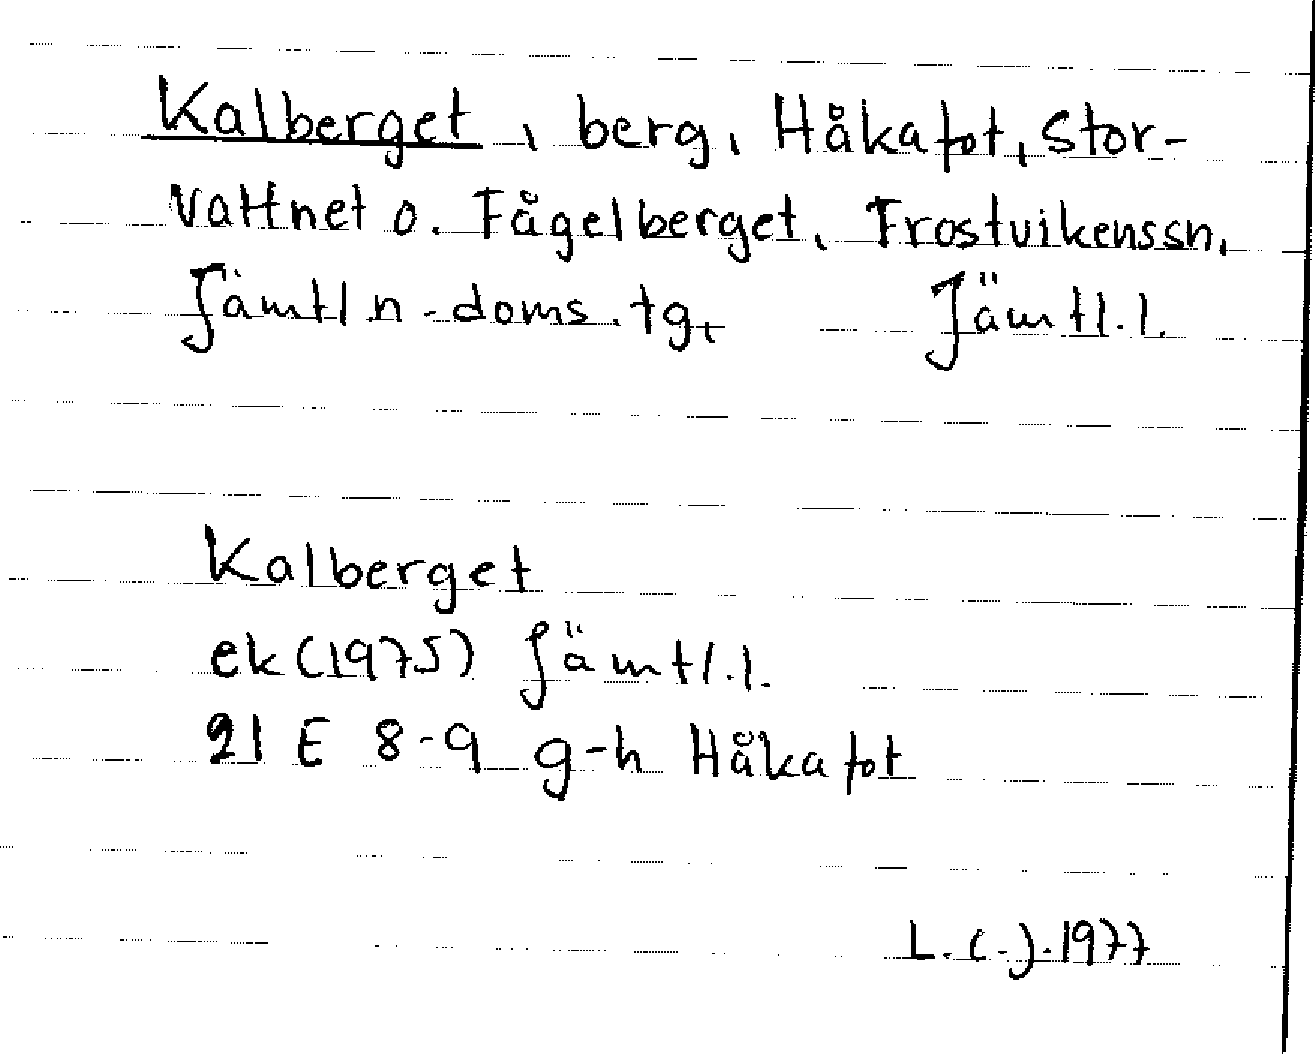 Kalberget, berg, Håkafot, Stor-
vattnet o. Fågelberget, Frostvikenssn,
Jämtl n. doms. tg, Jämtl. l.
Kalberget
ek (1975) Jämtl. l.
21 E 8-9 g-h Håkafot
L. C-J. 1977